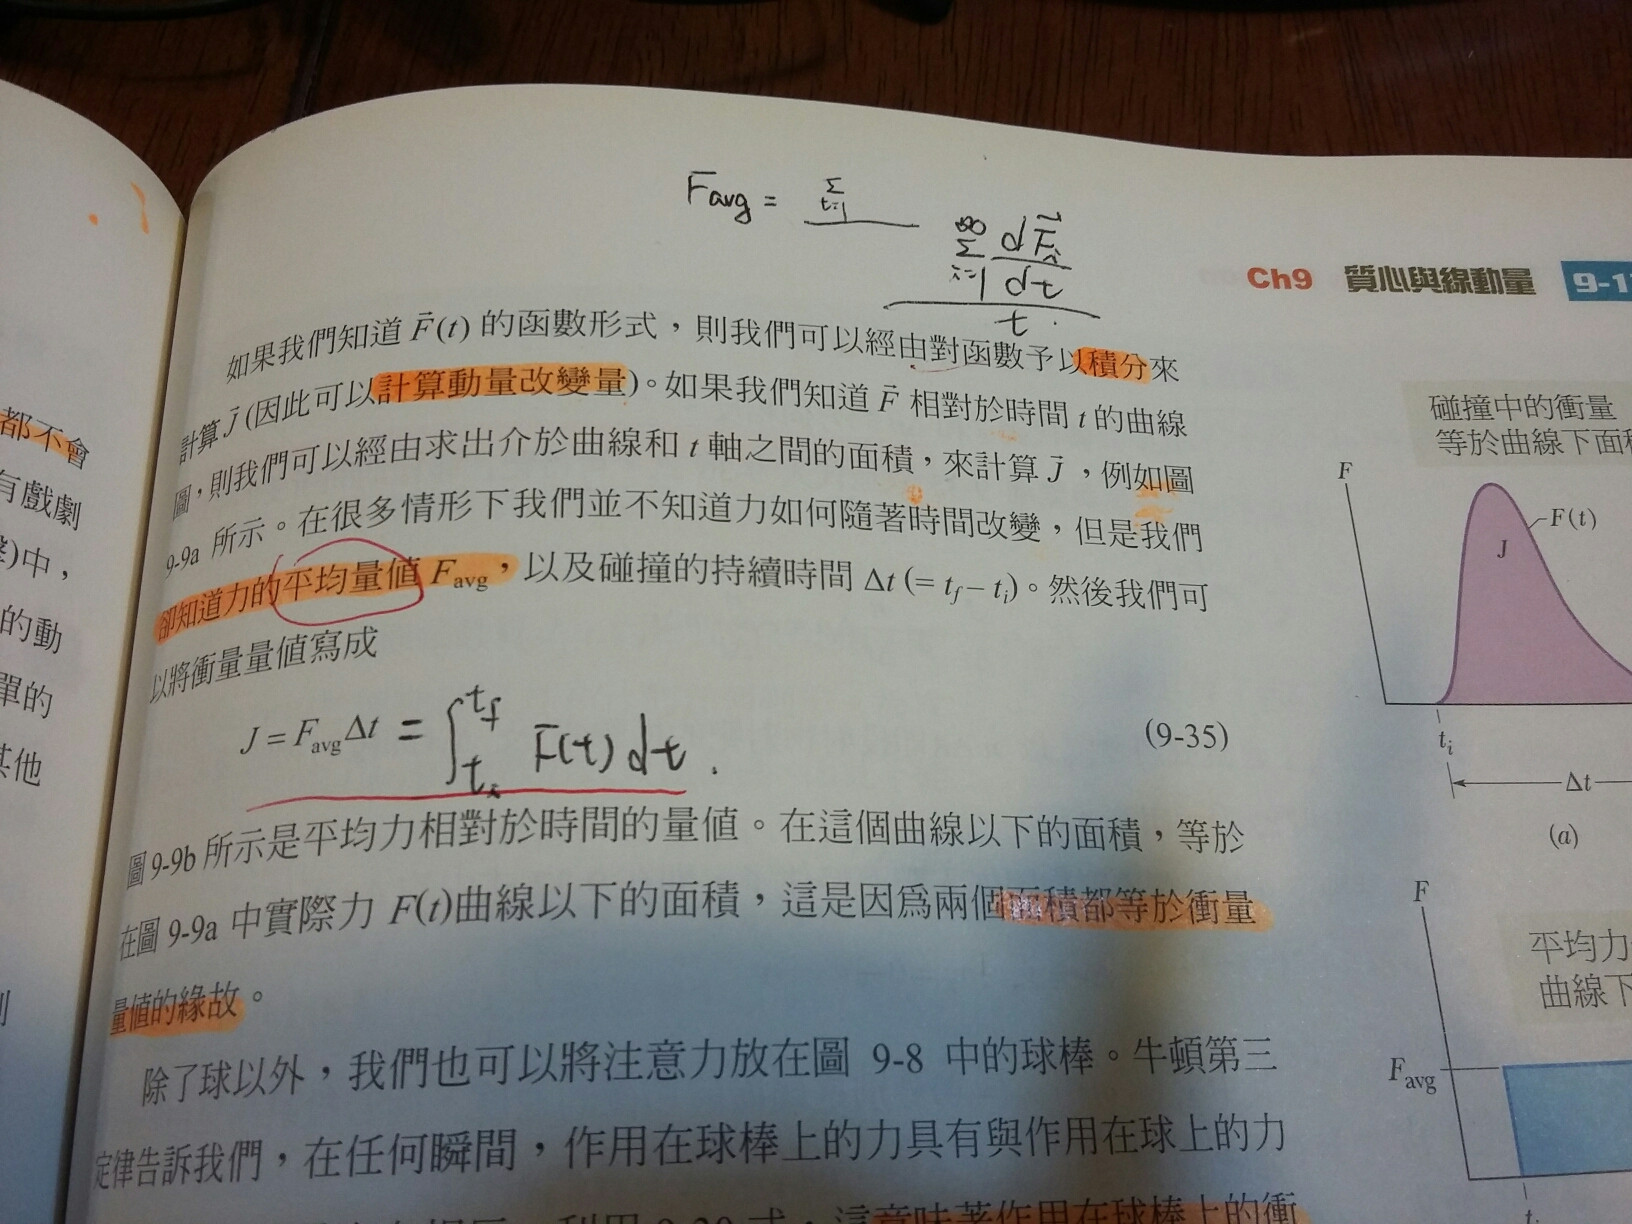 F̄avg = Σ t=1
∞ Σ i=1 dF⃗i / dt
t
Ch9 質心與線動量 9-1
如果我們知道 F⃗(t) 的函數形式，則我們可以經由對函數予以積分來
計算 J⃗ (因此可以計算動量改變量)。如果我們知道 F⃗ 相對於時間 t 的曲線
圖，則我們可以經由求出介於曲線和 t 軸之間的面積，來計算 J⃗，例如圖
9-9a 所示。在很多情形下我們並不知道力如何隨著時間改變，但是我們
卻知道力的平均量值 Favg，以及碰撞的持續時間 Δt (= tf – ti)。然後我們可
以將衝量量值寫成
J = FavgΔt = ∫ti tf F̄(t) dt.
(9-35)
圖 9-9b 所示是平均力相對於時間的量值。在這個曲線以下的面積，等於
在圖 9-9a 中實際力 F(t)曲線以下的面積，這是因為兩個面積都等於衝量
量值的緣故。
除了球以外，我們也可以將注意力放在圖 9-8 中的球棒。牛頓第三
定律告訴我們，在任何瞬間，作用在球棒上的力具有與作用在球上的力
這意味著作用在球棒上的衝
碰撞中的衝量
等於曲線下面
F
F(t)
J
ti
Δt
(a)
F
平均力
曲線下
Favg
都不會
有戲劇
中，
的動
單的
其他